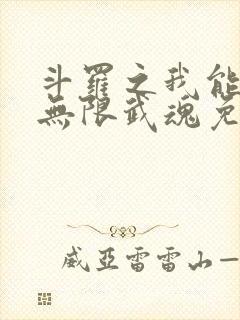 斗羅之我能
無限武魂兌
威亞雷雷山一